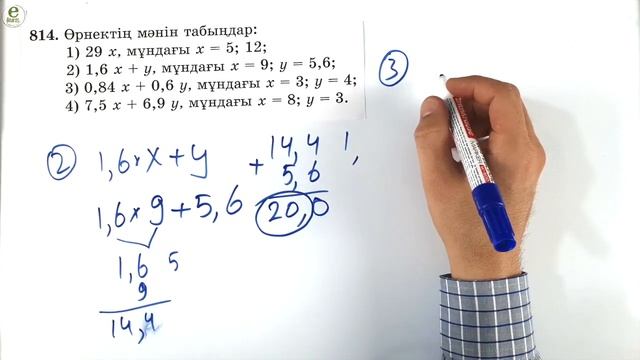 814. Өрнектің мәнін табыңдар:
1) 29 x, мұндағы x = 5; 12;
2) 1,6 x + y, мұндағы x = 9; y = 5,6;
3) 0,84 x + 0,6 y, мұндағы x = 3; y = 4;
4) 7,5 x + 6,9 y, мұндағы x = 8; y = 3.
3
2 1,6 × x + y
1,6 × 9 + 5,6
1,6 5
9
14,4
14,4 1,
+ 5,6
20,0